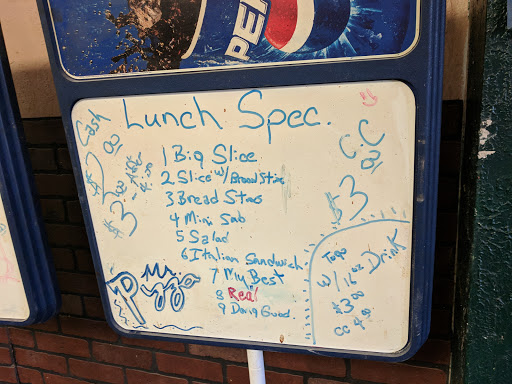 PEPSI
Lunch Spec.
Cash
C.C
$3
1 Big Slice
2 Slice w/ Bread Stix
3 Bread Stix
4 Mini Sub
5 Salad
6 Italian Sandwich
7 My Best
8 Real
9 Doing Good.
Mr.
Togo
w/ 16 oz Drink
$3.00
cc 4.00